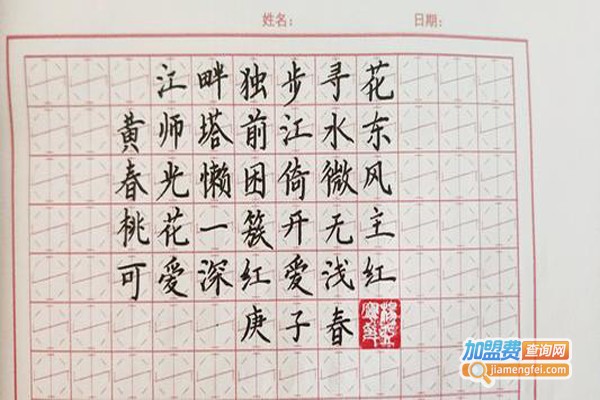 姓名：
日期：
江畔独步寻花
黄师塔前江水东
春光懒困倚微风
桃花一簇开无主
可爱深红爱浅红
庚子春
加盟费查询网
jiamengfei.com